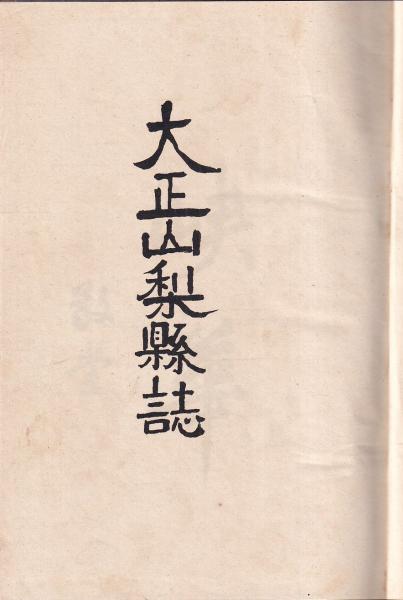 大正山梨縣誌